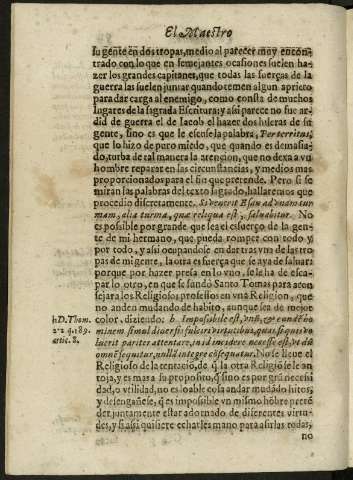 El Maestro
su gente en dos tropas, medio al parecer muy encon-
trado con lo que en semejantes ocasiones suelen ha-
zer los grandes capitanes, que todas las fuerças de la
guerra las suelen juntar quando temen algun aprieto
para dar carga al enemigo, como consta de muchos
lugares de la sagrada Escritura: y assi parece no fue ar-
did de guerra el de Iacob el hazer dos hileras de su
gente, sino es que le escuse la palabra, Perterritus,
que lo hizo de puro miedo, que quando es demasia-
do, turba de tal manera la atencion, que no dexa a vn
hombre reparar en las circunstancias, y medios mas
proporcionados para el fin que pretende. Pero si se
miran las palabras del texto sagrado, hallaremos que
procedio discretamente. Si venerit Esau ad vnam tur
mam, alia turma, quæ reliqua est, saluabitur. No
es possible por grande que sea el esfuerço de la gen-
te de mi hermano, que pueda romper con todo y
por todo, y assi ocupandose en der tras vna de las tro
pas de migente, la otra es fuerça que se aya de saluar:
porque por hazer presa en lo vno, se le ha de esca-
par lo otro, en que se fundò Santo Tomas para acon
sejar a los Religiosos professos en vna Religion, que
no anden mudando de habito, aunque sea de mejor
color, diziendo: h. Impossibile est, vnũ, & eundẽ ho
h D. Thom.
minem simul diuersis fulciri virtutibus, quas si quis vo
2-2 q. 189.
luerit pariter attentare, in id incidere necesse est, vt dũ
artic. 8.
omnes sequitur, nullã integre cõsequatur. No se lleue el
Religioso de la tentaciõ, de q̃ la otra Religiõ se le an
toja, y es mas a su proposito, q̃ sino es por grã necesi
dad, o vtilidad, no es loable cosa andar mudado hitos,
y desengañese, q̃ es impossible vn mismo hõbre pretẽ
der juntamente estar adornado de diferentes virtu-
des, y si assi quisiere echar les mano para asirlas todas,
no